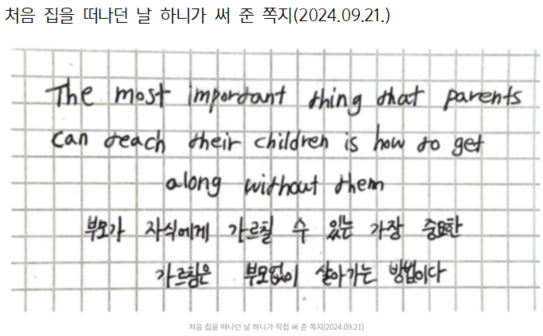 처음 집을 떠나던 날 하니가 써 준 쪽지(2024.09.21.)
The most important thing that parents
can teach their children is how to get
along without them
부모가 자식에게 가르칠 수 있는 가장 중요한
가르침은 부모없이 살아가는 방법이다
처음 집을 떠나던 날 하니가 직접 써 준 쪽지(2024.09.21)